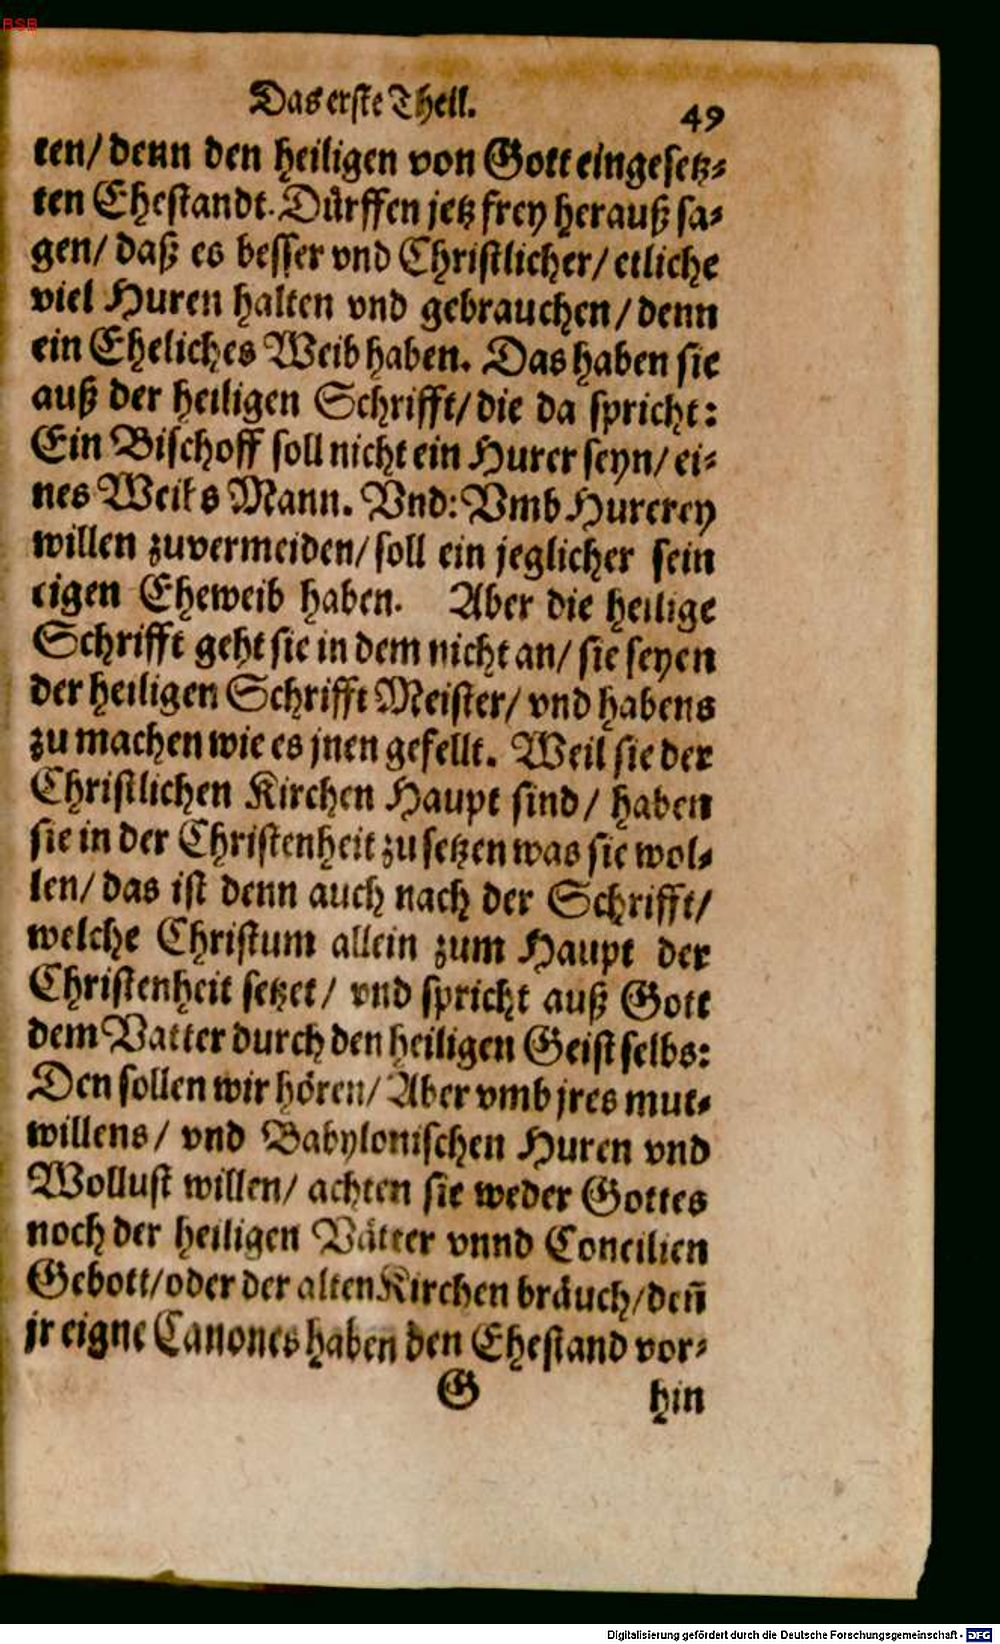 BSB
Das erste Theil.
49
ten/ denn den heiligen von Gott eingesetz-
ten Ehestandt. Dürffen jetz frey herauß sa-
gen/ daß es besser vnd Christlicher/ etliche
viel Huren halten vnd gebrauchen/ denn
ein Eheliches Weib haben. Das haben sie
auß der heiligen Schrifft/ die da spricht:
Ein Bischoff soll nicht ein Hurer seyn/ ei-
nes Weibs Mann. Vnd: Vmb Hurerey
willen zuvermeiden/ soll ein jeglicher sein
eigen Eheweib haben. Aber die heilige
Schrifft geht sie in dem nicht an/ sie seyen
der heiligen Schrifft Meister/ vnd habens
zu machen wie es jnen gefellt. Weil sie der
Christlichen Kirchen Haupt sind/ haben
sie in der Christenheit zu setzen was sie wol-
len/ das ist denn auch nach der Schrifft/
welche Christum allein zum Haupt der
Christenheit setzet/ vnd spricht auß Gott
dem Vatter durch den heiligen Geist selbs:
Den sollen wir hören/ Aber vmb jres mut-
willens/ vnd Babylonischen Huren vnd
Wollust willen/ achten sie weder Gottes
noch der heiligen Vätter vnnd Concilien
Gebott/ oder der alten Kirchen bräuch/ deñ
jr eigne Canones haben den Ehestand vor-
G
hin
Digitalisierung gefördert durch die Deutsche Forschungsgemeinschaft - DFG